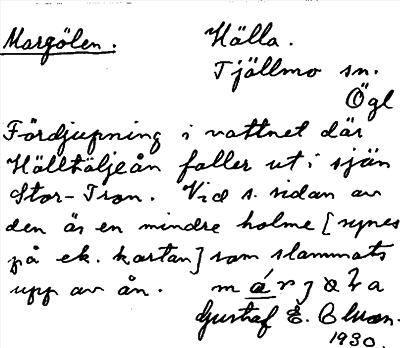 Margölen. Hälla.
Tjällmo sn.
Ögl
Fördjupning i vattnet där
Hälltäljeån faller ut i sjön
Stor-Tron. Vid s. sidan av
den är en mindre holme [synes
på ek. kartan] som slammats
upp av ån.
Gustaf E.
1930.